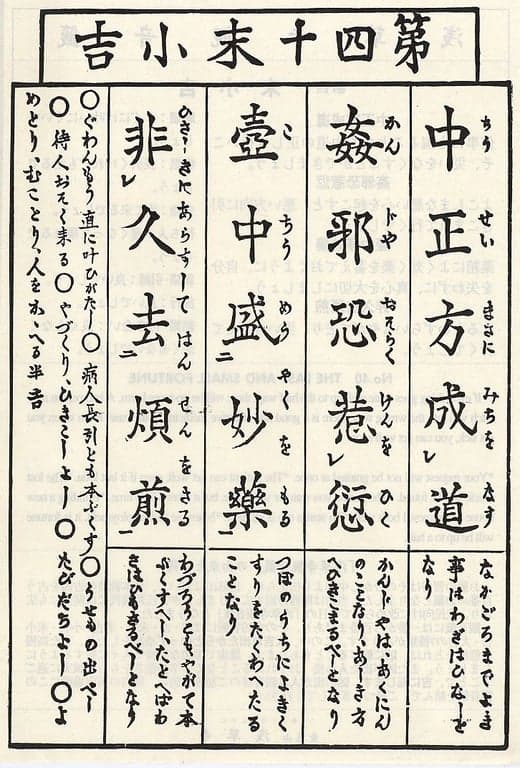 第四十末小吉
中正方成レ道
ちうせいまさにみちをなす
なかごろまでよき
事はわざはひなしと
なり
姦邪恐惹レ愆
かんじやおそらくけんをひく
かんじやは、あくにん
のことなり、あしき方
ひきこまるべしとなり
壺中盛二妙藥一
こちうめうやくをもる
つぼのうちによきく
すりをたくわへたる
ことなり
非レ久去二煩煎一
ひさしきにあらずしてはんせんをさる
わづらふともやがて本
ぶくすべしたとへばわ
ざはひもさるべしとなり
○ぐわんもう 直に叶ひがたし○病人長引とも本ぶくす○うせもの出べし
○待人おそく来る○やづくり、ひきこしよし○たびだちよし○よ
めとり、むことり、人をかゝへる半吉